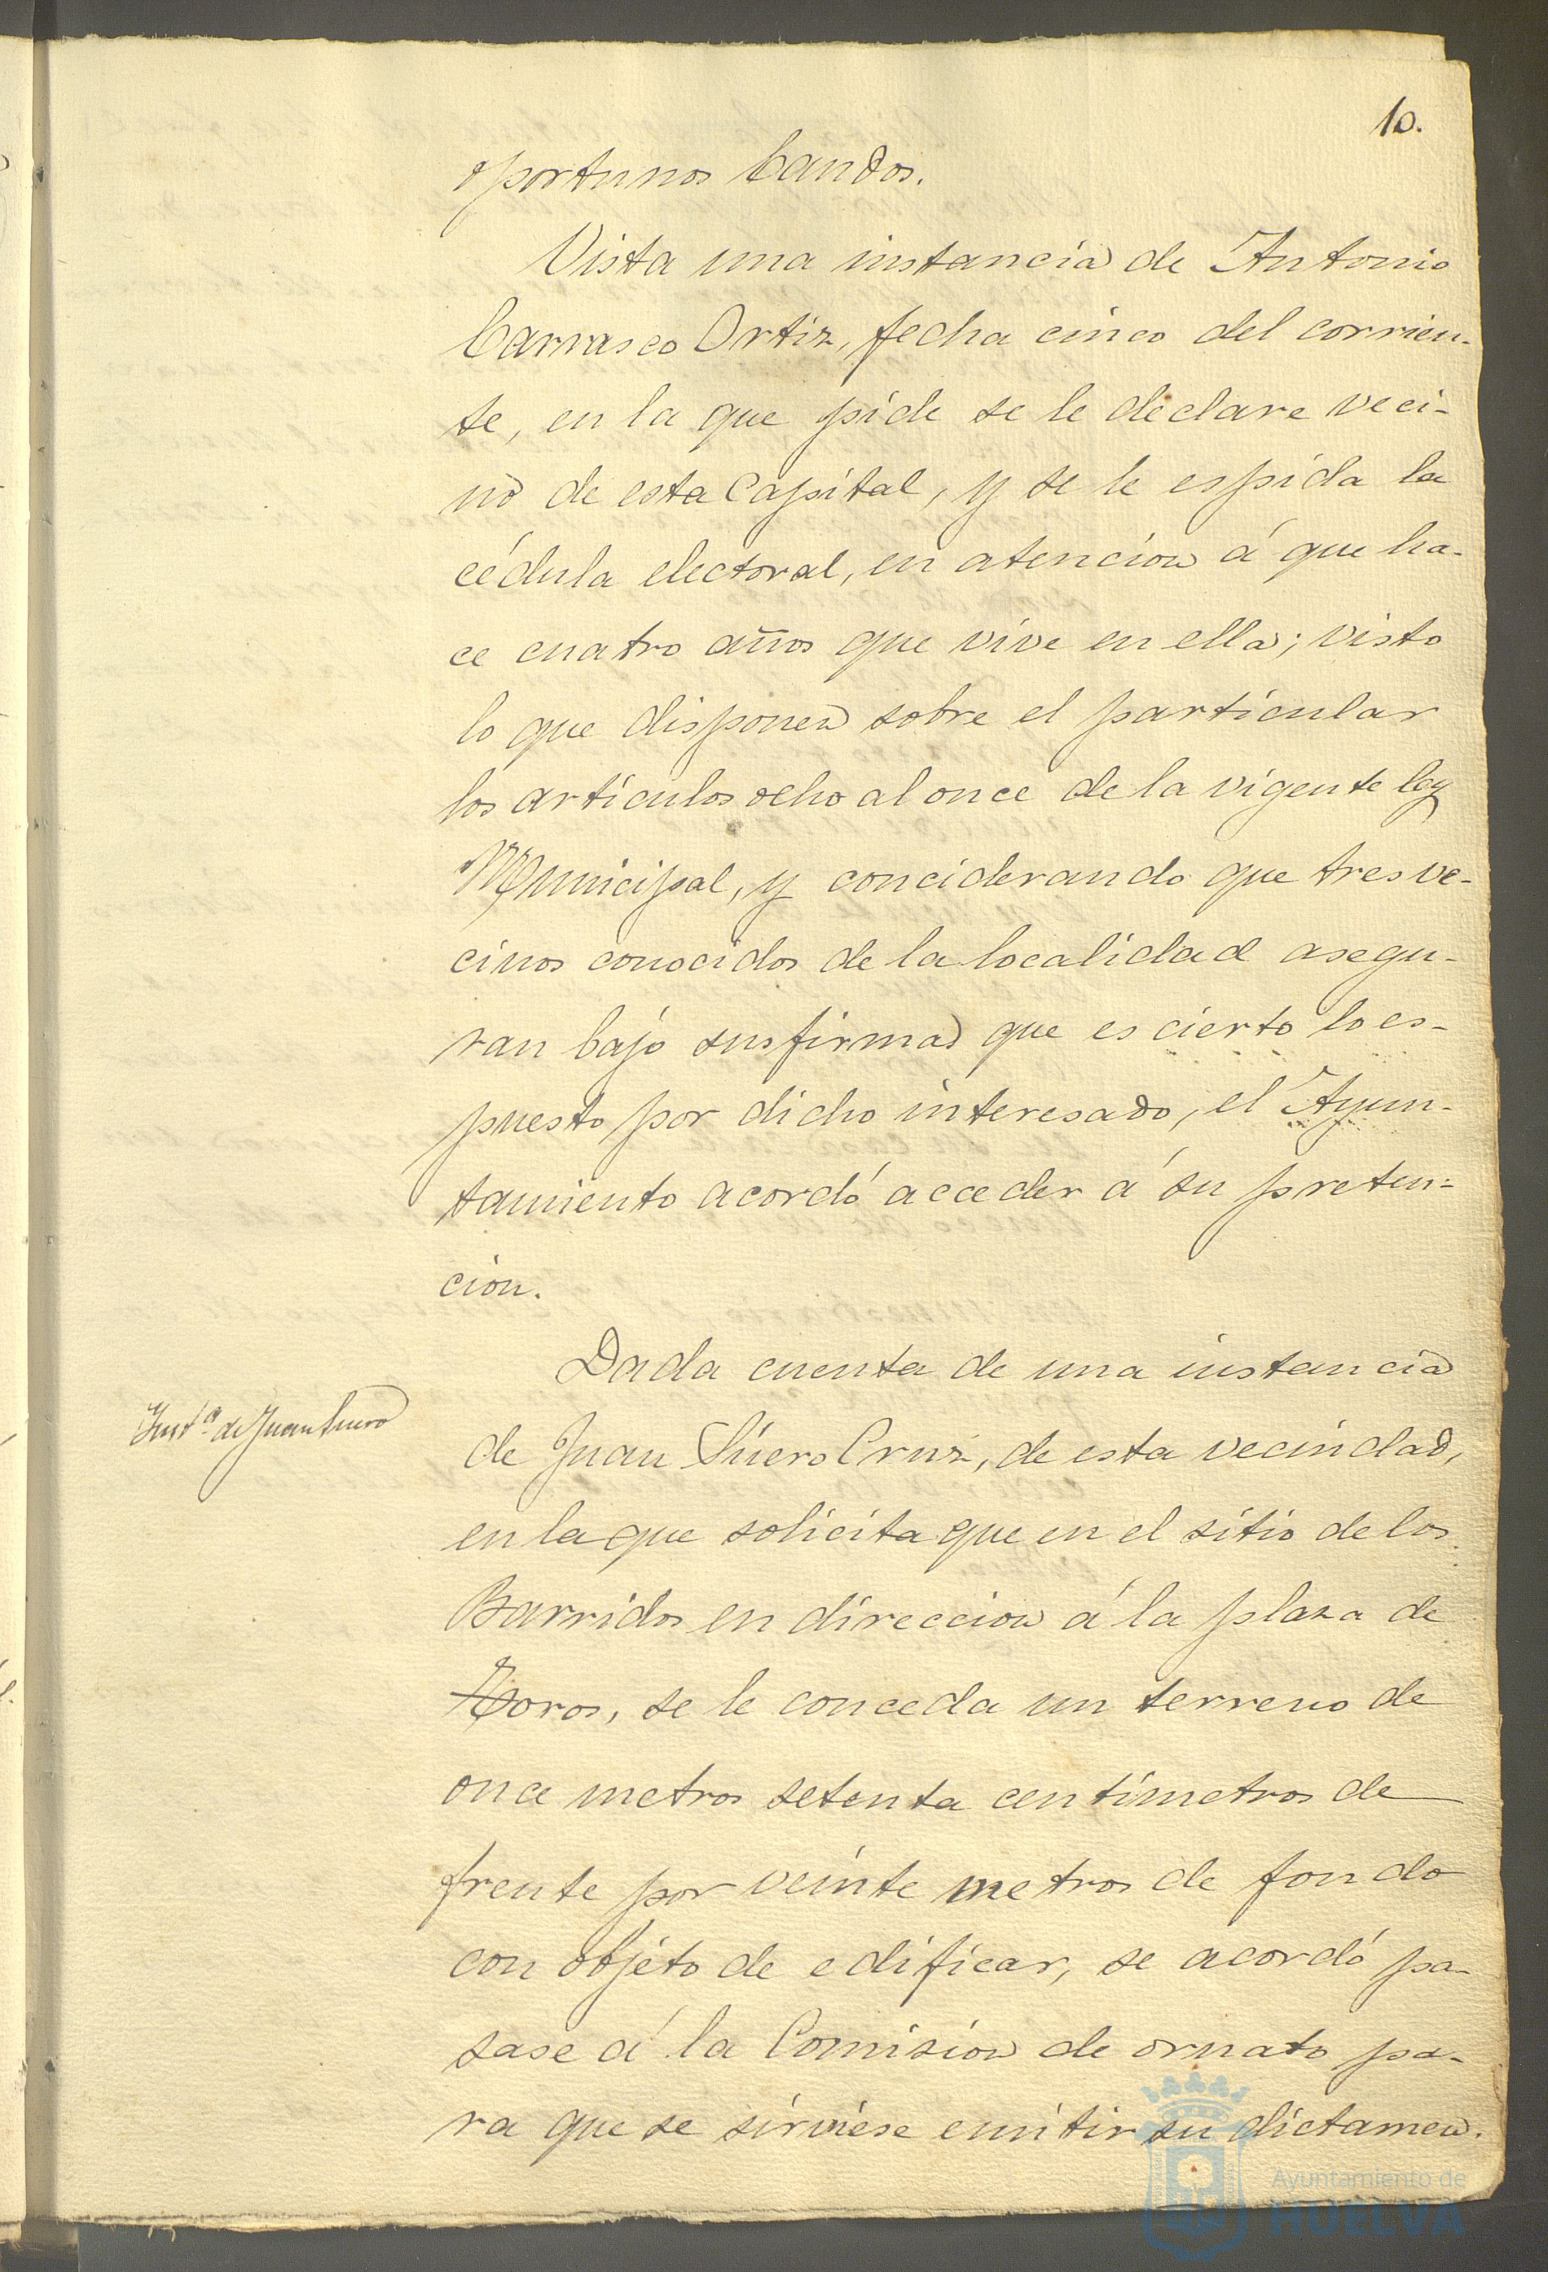 10.
oportunos bandos.
Vista una instancia de Antonio
Carrasco Ortiz, fecha cinco del corrien-
te, en la que pide se le declare veci-
no de esta Capital, y se le espida la
cédula electoral, en atencion á que ha-
ce cuatro años que vive en ella; visto
lo que disponen sobre el particular
los artículos ocho al once de la vigente ley
Municipal, y conciderando que tres ve-
cinos conocidos de la localidad asegu-
ran bajo sus firmas que es cierto lo es-
puesto por dicho interesado, el Ayun-
tamiento acordó acceder á su preten-
cion.
Dada cuenta de una instancia
Inst.ª de Juan Suero
de Juan Súero Cruz, de esta vecindad,
en la que solicita que en el sitio de los
Barridos en direccion á la plaza de
Toros, se le conceda un terreno de
once metros setenta centímetros de
frente por veinte metros de fondo
con objeto de edificar, se acordó pa-
sase á la Comision de ornato pa-
ra que se sirviese emitir su dictamen.
Ayuntamiento de
HUELVA